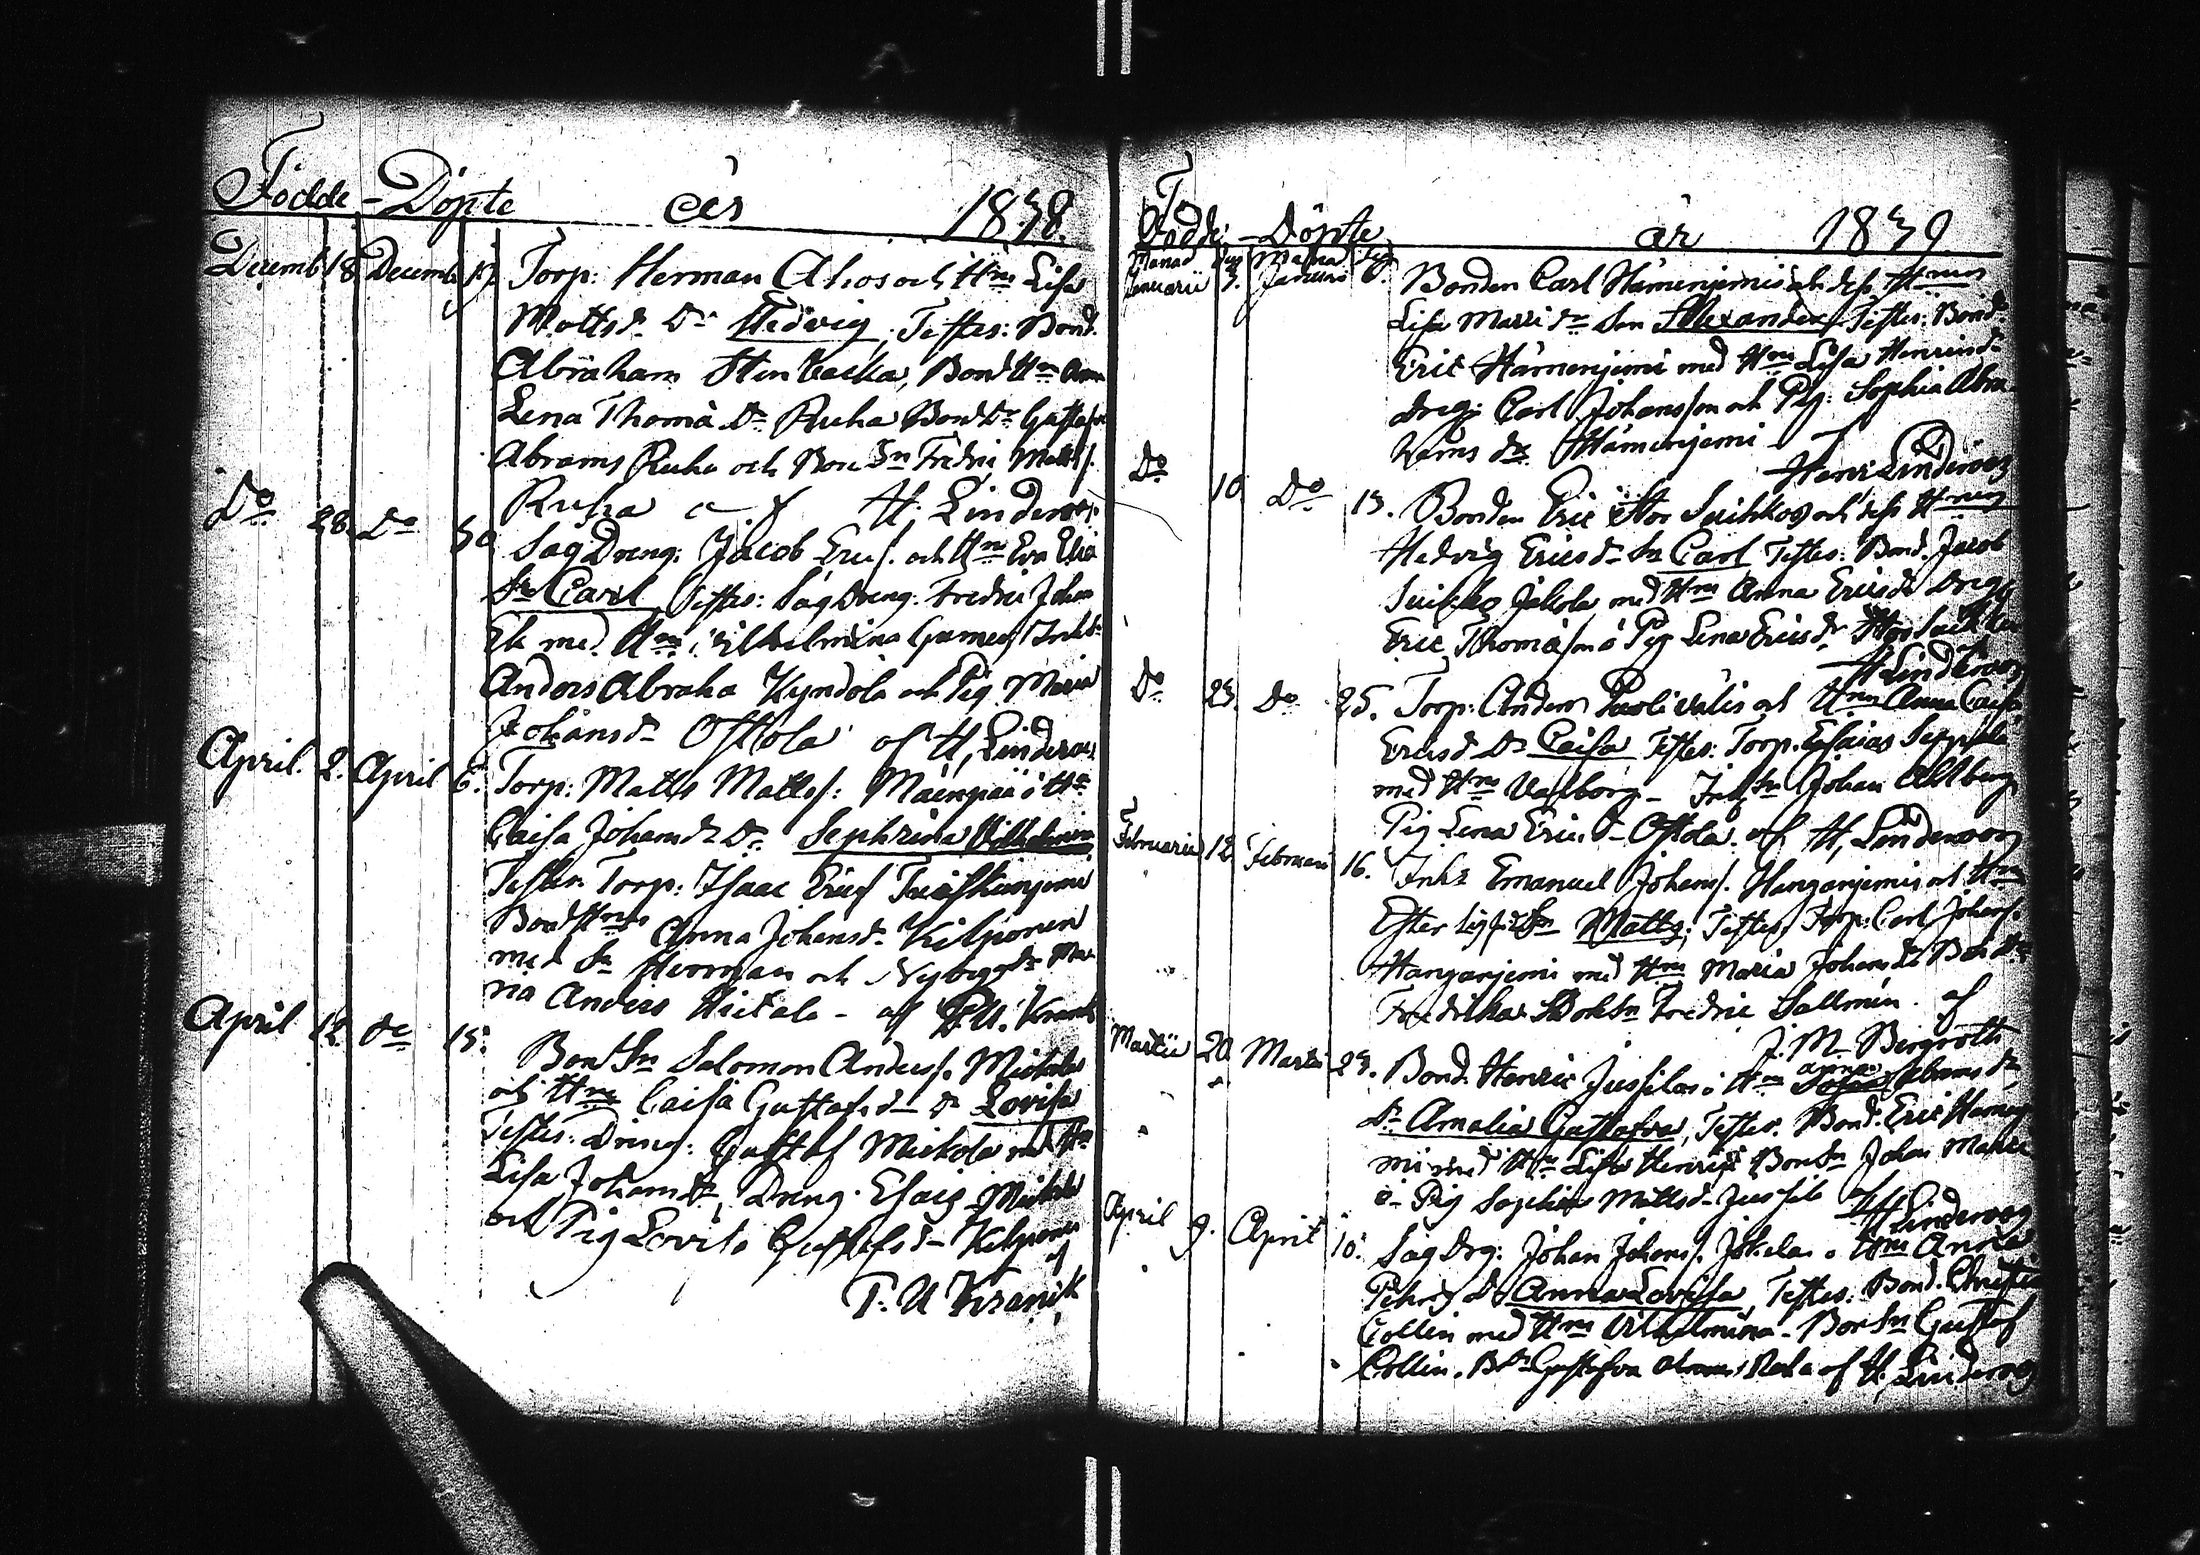 Födde - Döpte år 1838.
Decemb. 18. Decemb. 19. Torp: Herman Ahos och Hm Lisa
Mattsdr Dr Hedvig, Testes: Bond.
Abraham Stenbacka, Bond Hm Anna
Lena Thomä Dr Ruha Bond Dr Gustafva
Abrams Ruha och Bon Sn Fredric Matts/.
Ruha af H. Linderoos.
Do 28. Do 30 SagDreng: Jacob Erics/. och Hm Eva Elia
Sn Carl Testes: SågDreng: Fredric Johan
Ek med Hm Vilhelmina Inhs
Anders Abraha Kyndola och Pig Maria
Johansdr Ollola af H, Linderoos
April. 2. April 6. Torp: Matts Matts/: Mäenpää o Hm
Caisa Johansdr Dr Sephrina Vilhelmina
Testes Torp: Isaac Erics/
BondHm Anna Johansdr Kilponen
med Sn Herman och Nybyggdr Ma
ria Anders Hietala - af P. U. Kranck
April 12. do 15. BondSn Salomon Anders/. Mickola
och Hm Caisa Gustafsdr Dr Lovisa
Testes: Dreng: Gustaf Mickola med Hm
Lisa Johansdr, Dreng: Esaias Mickola
och Pig Lovisa Gustafsdr Kilponen
af
P. U Kranck
Födde - Döpte år 1839
Månad Dag Månad Dag
Januarii 3. Januarii 6. Bonden Carl Hämenjemis och dess Hmes
Lisa Mattsdr Son Alexander Testes: Bond.
Eric Hämenjemi med Hm Lisa Henricsdr
dreg: Carl Johansson och Pig: Sophia Abra
hams dr Hämenjemi af
Henr Linderoos
Do 10 Do 13. Bonden Eric Stor Suikkos och dess Hmes
Hedvig Ericsdr Sn Carl Testes: Bond. Jacob
Suikko Jakola med Hm Anna Ericsdr Dreg
Eric Thomäson o Pig Lena Ericsdr Stor Suikko
H Linderoos
Do 23. Do 25. Torp: Anders Puolivälis och Hm Anna Caisa
Ericsdr Dr Caisa Testes: Torp. Esaias Seppälä
med Hm Valborg - Inhs Sn Johan Ahlberg
Pig Lena Ericsdr Ollola. af H, Linderoos
Februarii 12. Februarii 16. Inhs Emanuel Johans/. Hanganjemis och Hm
Ester Sn Matts; Testes, Torp: Carl Johans/.
Hanganjemi med Hm Maria Johansdr Bon Dr
Fredrika BokSn Fredric Sallmén. af
J. M. Bergroth
Martii 20. Martii 23. Bond. Henric Jussilas o Hm Anna Abrams dr
Dr Amalia Gustafva, Testes. Bond. Eric Hämenje
mi med Hm Lisa Henricsdr BonSn Johan Matts
o - Pig Sophia Mattsdr Jussila af
H Linderoos
April 9. April 10. Såg Drg: Johan Johans/. Jokelas o Hm Anna
Pehrs dr Dr Anna Lovisa, Testes: Bond. Christia
Collin med Hm Vilhelmina - BonSn Gustaf
Collin. B Dr Gustafva Abrams Ruha af H, Linderoos